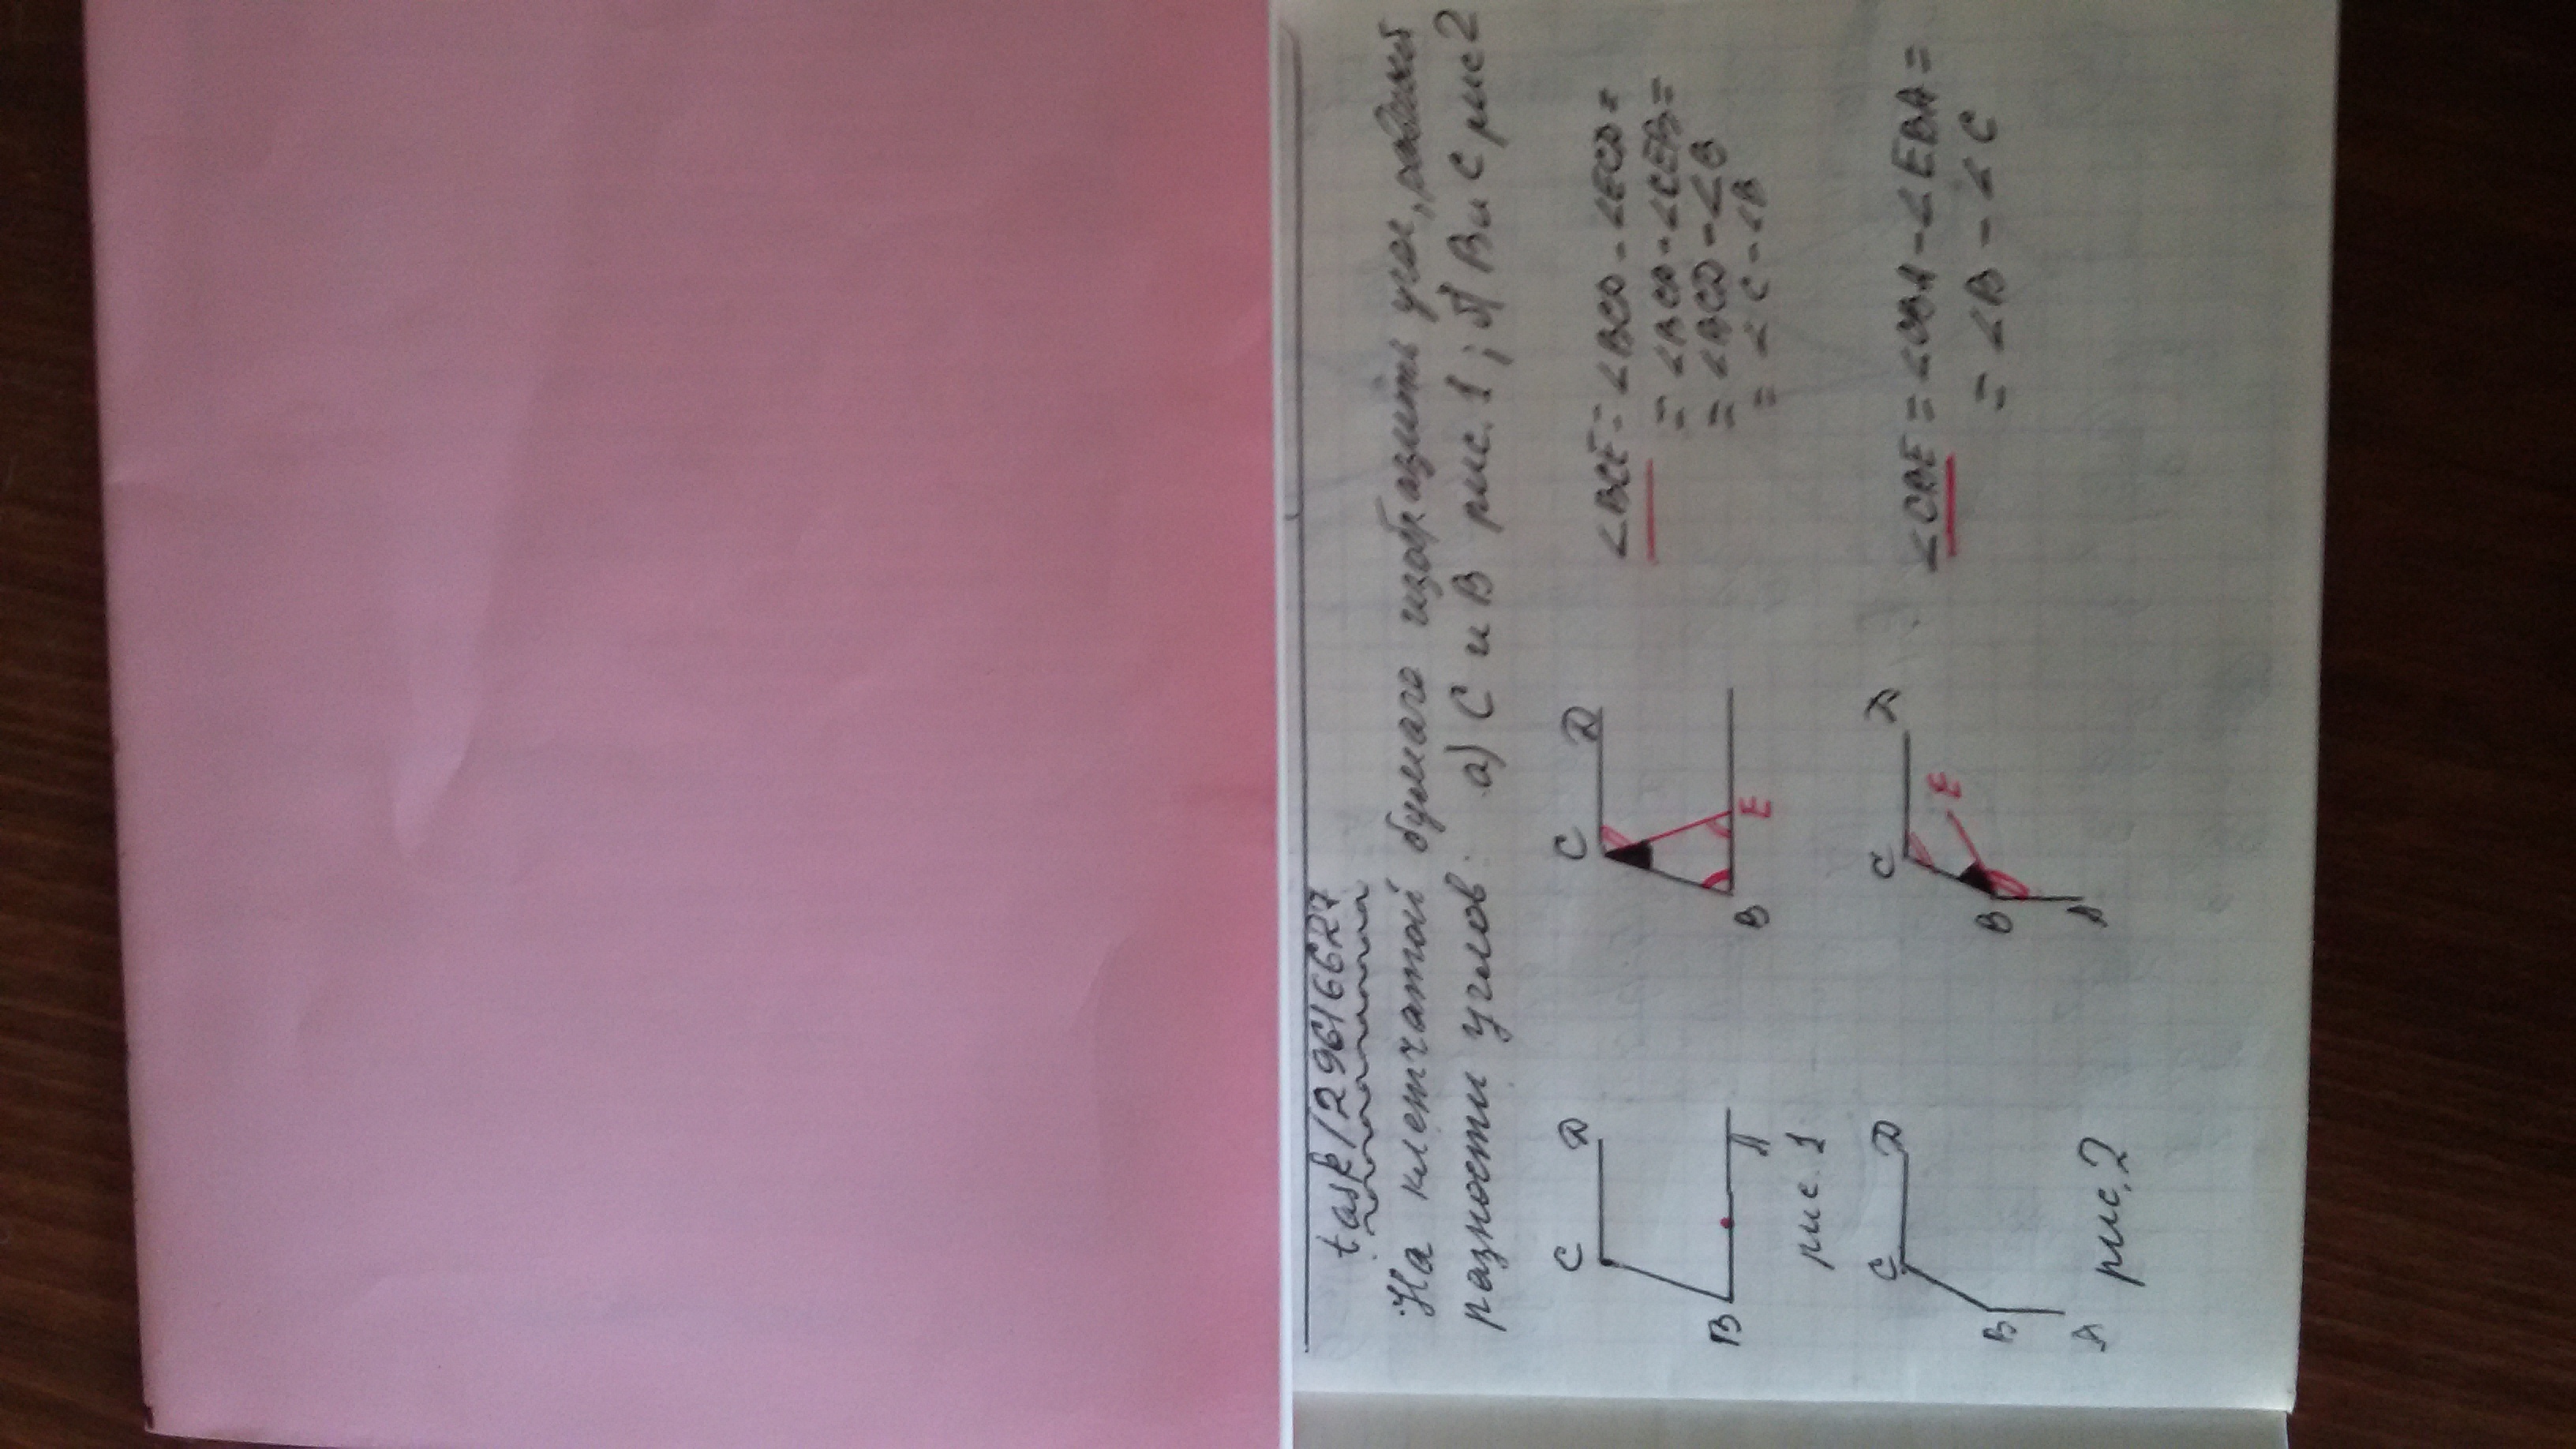 task/29616627
На клетчатой бумаго изобразить угол, равный
разности углов. а) C и B рис. 1; б) B и C рис 2
C D
B A
рис. 1
C D
B E
∠BCE = ∠BCD - ∠ECD =
= ∠BCD - ∠CEB =
= ∠BCD - ∠B
= ∠C - ∠B
C D
B
A
рис. 2
C D
E
B
A
∠CBE = ∠CBA - ∠EBA =
= ∠B - ∠C